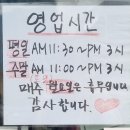 영업시간
평일 AM 11:30 ~ PM 3시
주말 AM 11:30 ~ PM 3시
매주 월요일은 휴무입니다
감사합니다.